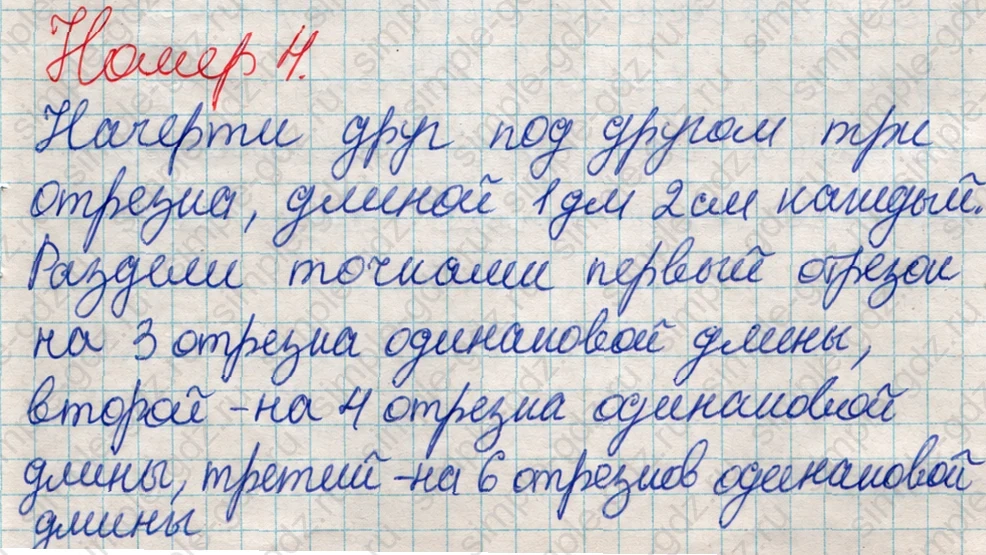 Номер 4.
Начерти друг под другом три
отрезка, длиной 1 дм 2 см каждый.
Раздели точками первый отрезок
на 3 отрезка одинаковой длины,
второй - на 4 отрезка одинаковой
длины, третий - на 6 отрезков одинаковой
длины